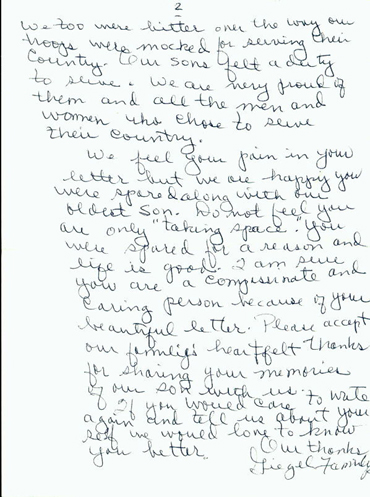 2
We too were bitter over the way our
troops were mocked for serving their
Country. Our sons felt a duty
to serve. We are very proud of
them and all the men and
women who chose to serve
their country.
We feel your pain in your
letter but we are happy you
were spared along with our
oldest son. Do not feel you
are only "taking space." You
were spared for a reason and
life is good. I am sure
you are a compasinate and
caring person because of your
beautiful letter. Please accept
our family's heartfelt thanks
for sharing your memories
of our son with us.
If you would care to write
again and tell us about your
self we would love to know
you better.
Our thanks,
Siegel Family